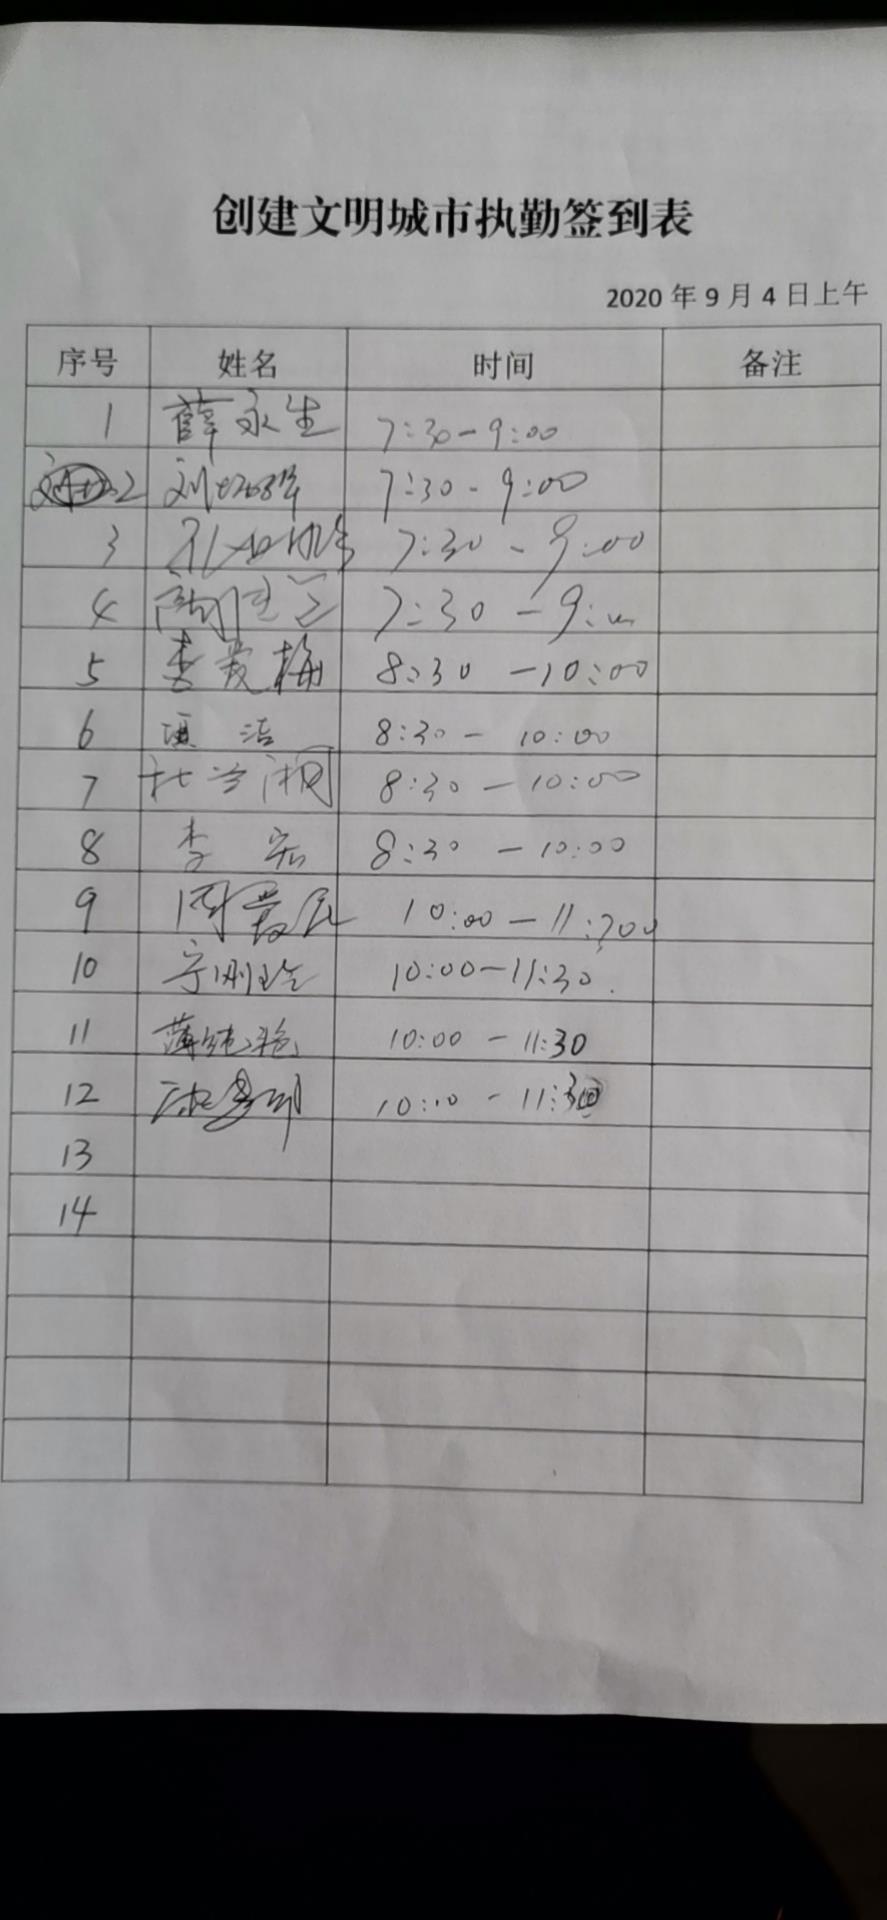 创建文明城市执勤签到表
2020年9月4日上午
序号 姓名 时间 备注
1 薛永生 7:30-9:00
2 刘 7:30-9:00
3 7:30-9:00
4 7:30-9:
5 李爱梅 8:30-10:00
6 项洁 8:30-10:00
7 杜兰湘 8:30-10:00
8 李宏 8:30-10:00
9 周爱民 10:00-11:
10 10:00-11:30
11 薄纯艳 10:00-11:30
12 10:10-11:30
13
14